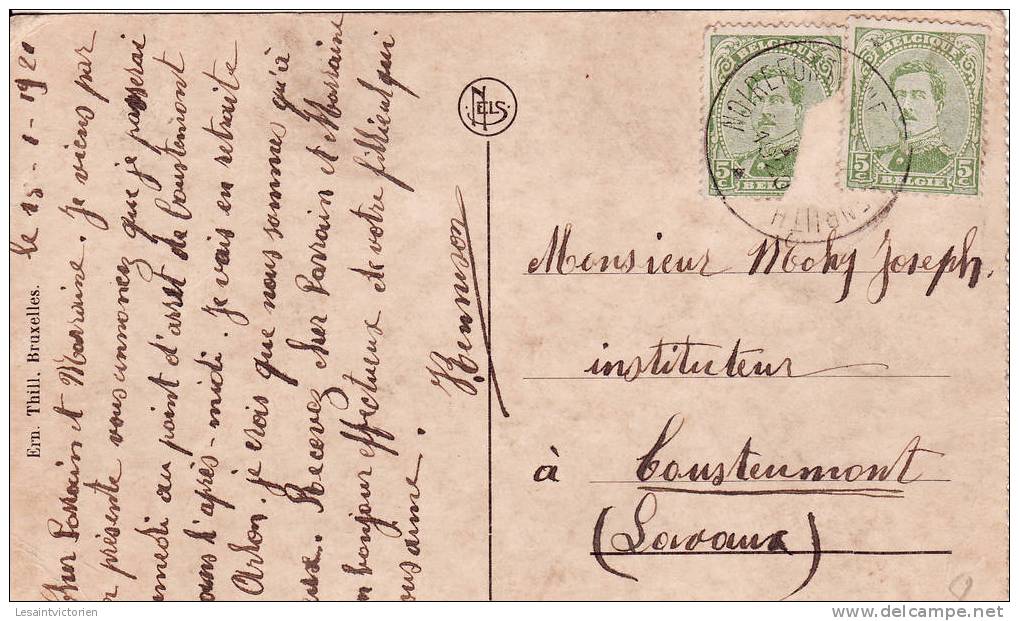 le 18-1-1920
Cher Parrain et Marraine. Je viens par
présente vous annoncez que je passerai
medi au point d'arrêt de Coustumont
d'après-midi. Je vais en retraite
Arlon. je crois que nous somme qu'à
eux. Recevez cher Parrain et Marraine
bonjour affectueux de votre fillieul qui
vous aime.
Ern. Thill, Bruxelles.
NELS
BELGIQUE
5
BEL
BELGIQUE
5 5
BELGIE
Monsieur Mohy Joseph.
instituteur
à Coustumont
(Lavaux)
Lesaintvictorien
www.delcampe.net